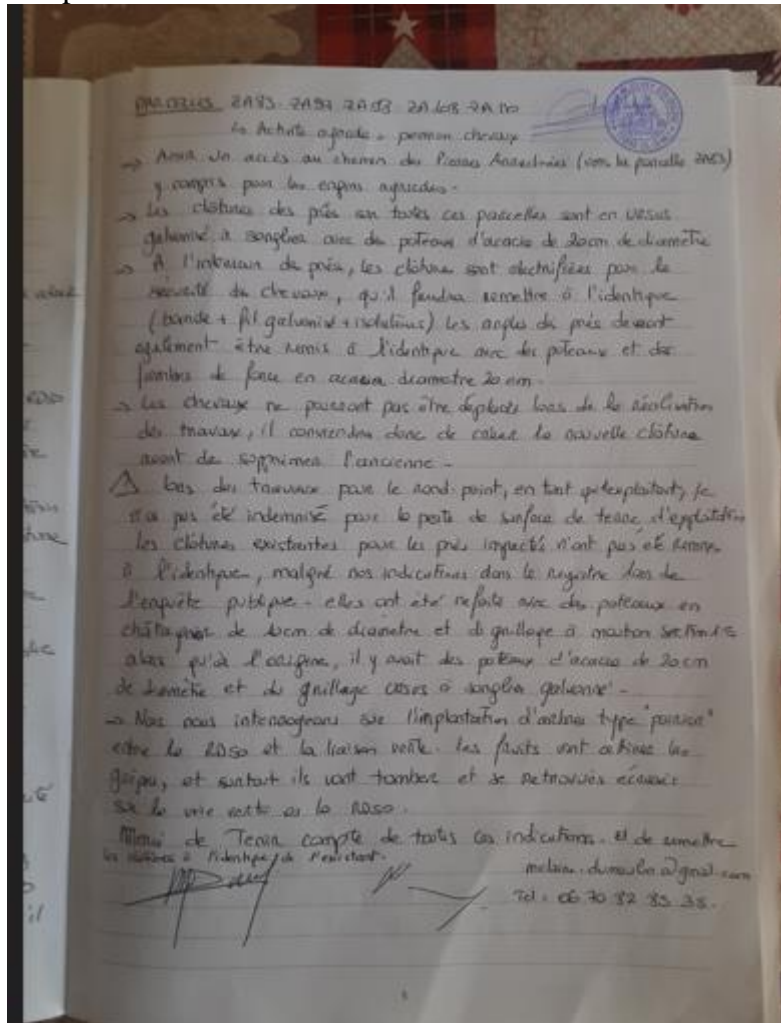 PARCELLES 2A83 - 2A92 2A93 - 2A 108 2A 110
↳ Activité agricole = pension chevaux
→ Avoir un accès au chemin des Pierres (vers la parcelle 2A83)
y compris pour les engins agricoles -
→ Les clôtures des prés sur toutes ces parcelles sont en URSUS
galvanisé à sanglier avec des poteaux d'acacia de 20cm de diamètre
→ A l'intérieur de prés, les clôtures sont électrifiées pour la
sécurité des chevaux, qu'il faudra remettre à l'identique
(bande + fil galvanisé + isolateurs) Les angles des prés devront
également être remis à l'identique avec des poteaux et des
jambes de force en acacia diametre 20 cm -
→ Les chevaux ne pouvant pas être déplacés lors de la réalisation
des travaux, il conviendra donc de créer la nouvelle clôture
avant de supprimer l'ancienne -
⚠ Lors des travaux pour le rond point, en tant qu'exploitant, je
n'ai pas été indemnisé pour la perte de surface de terre d'exploitation
Les clôtures existantes pour les prés impactés n'ont pas été remises
à l'identique, malgré nos indications dans le registre lors de
l'enquête publique - elles ont été refaite avec des poteaux en
châtaignier de 10cm de diametre et du grillage à mouton
alors qu'à l'origine, il y avait des poteaux d'acacia de 20 cm
de diamètre et du grillage à sanglier galvanisé -
→ Nous nous interrogeons sur l'implantation d'arbres type "poirier"
entre la RD50 et la liaison verte. Les fruits vont attirer les
guêpes, et surtout ils vont tomber et se retrouver écrasés
sur la voie verte ou la RD50.
Merci de Tenir compte de toutes ces indications. et de remettre
les clôtures à l'identique de l'existant.
dumoulin@gmail.com
Tel : 06 70 82 85 38 -